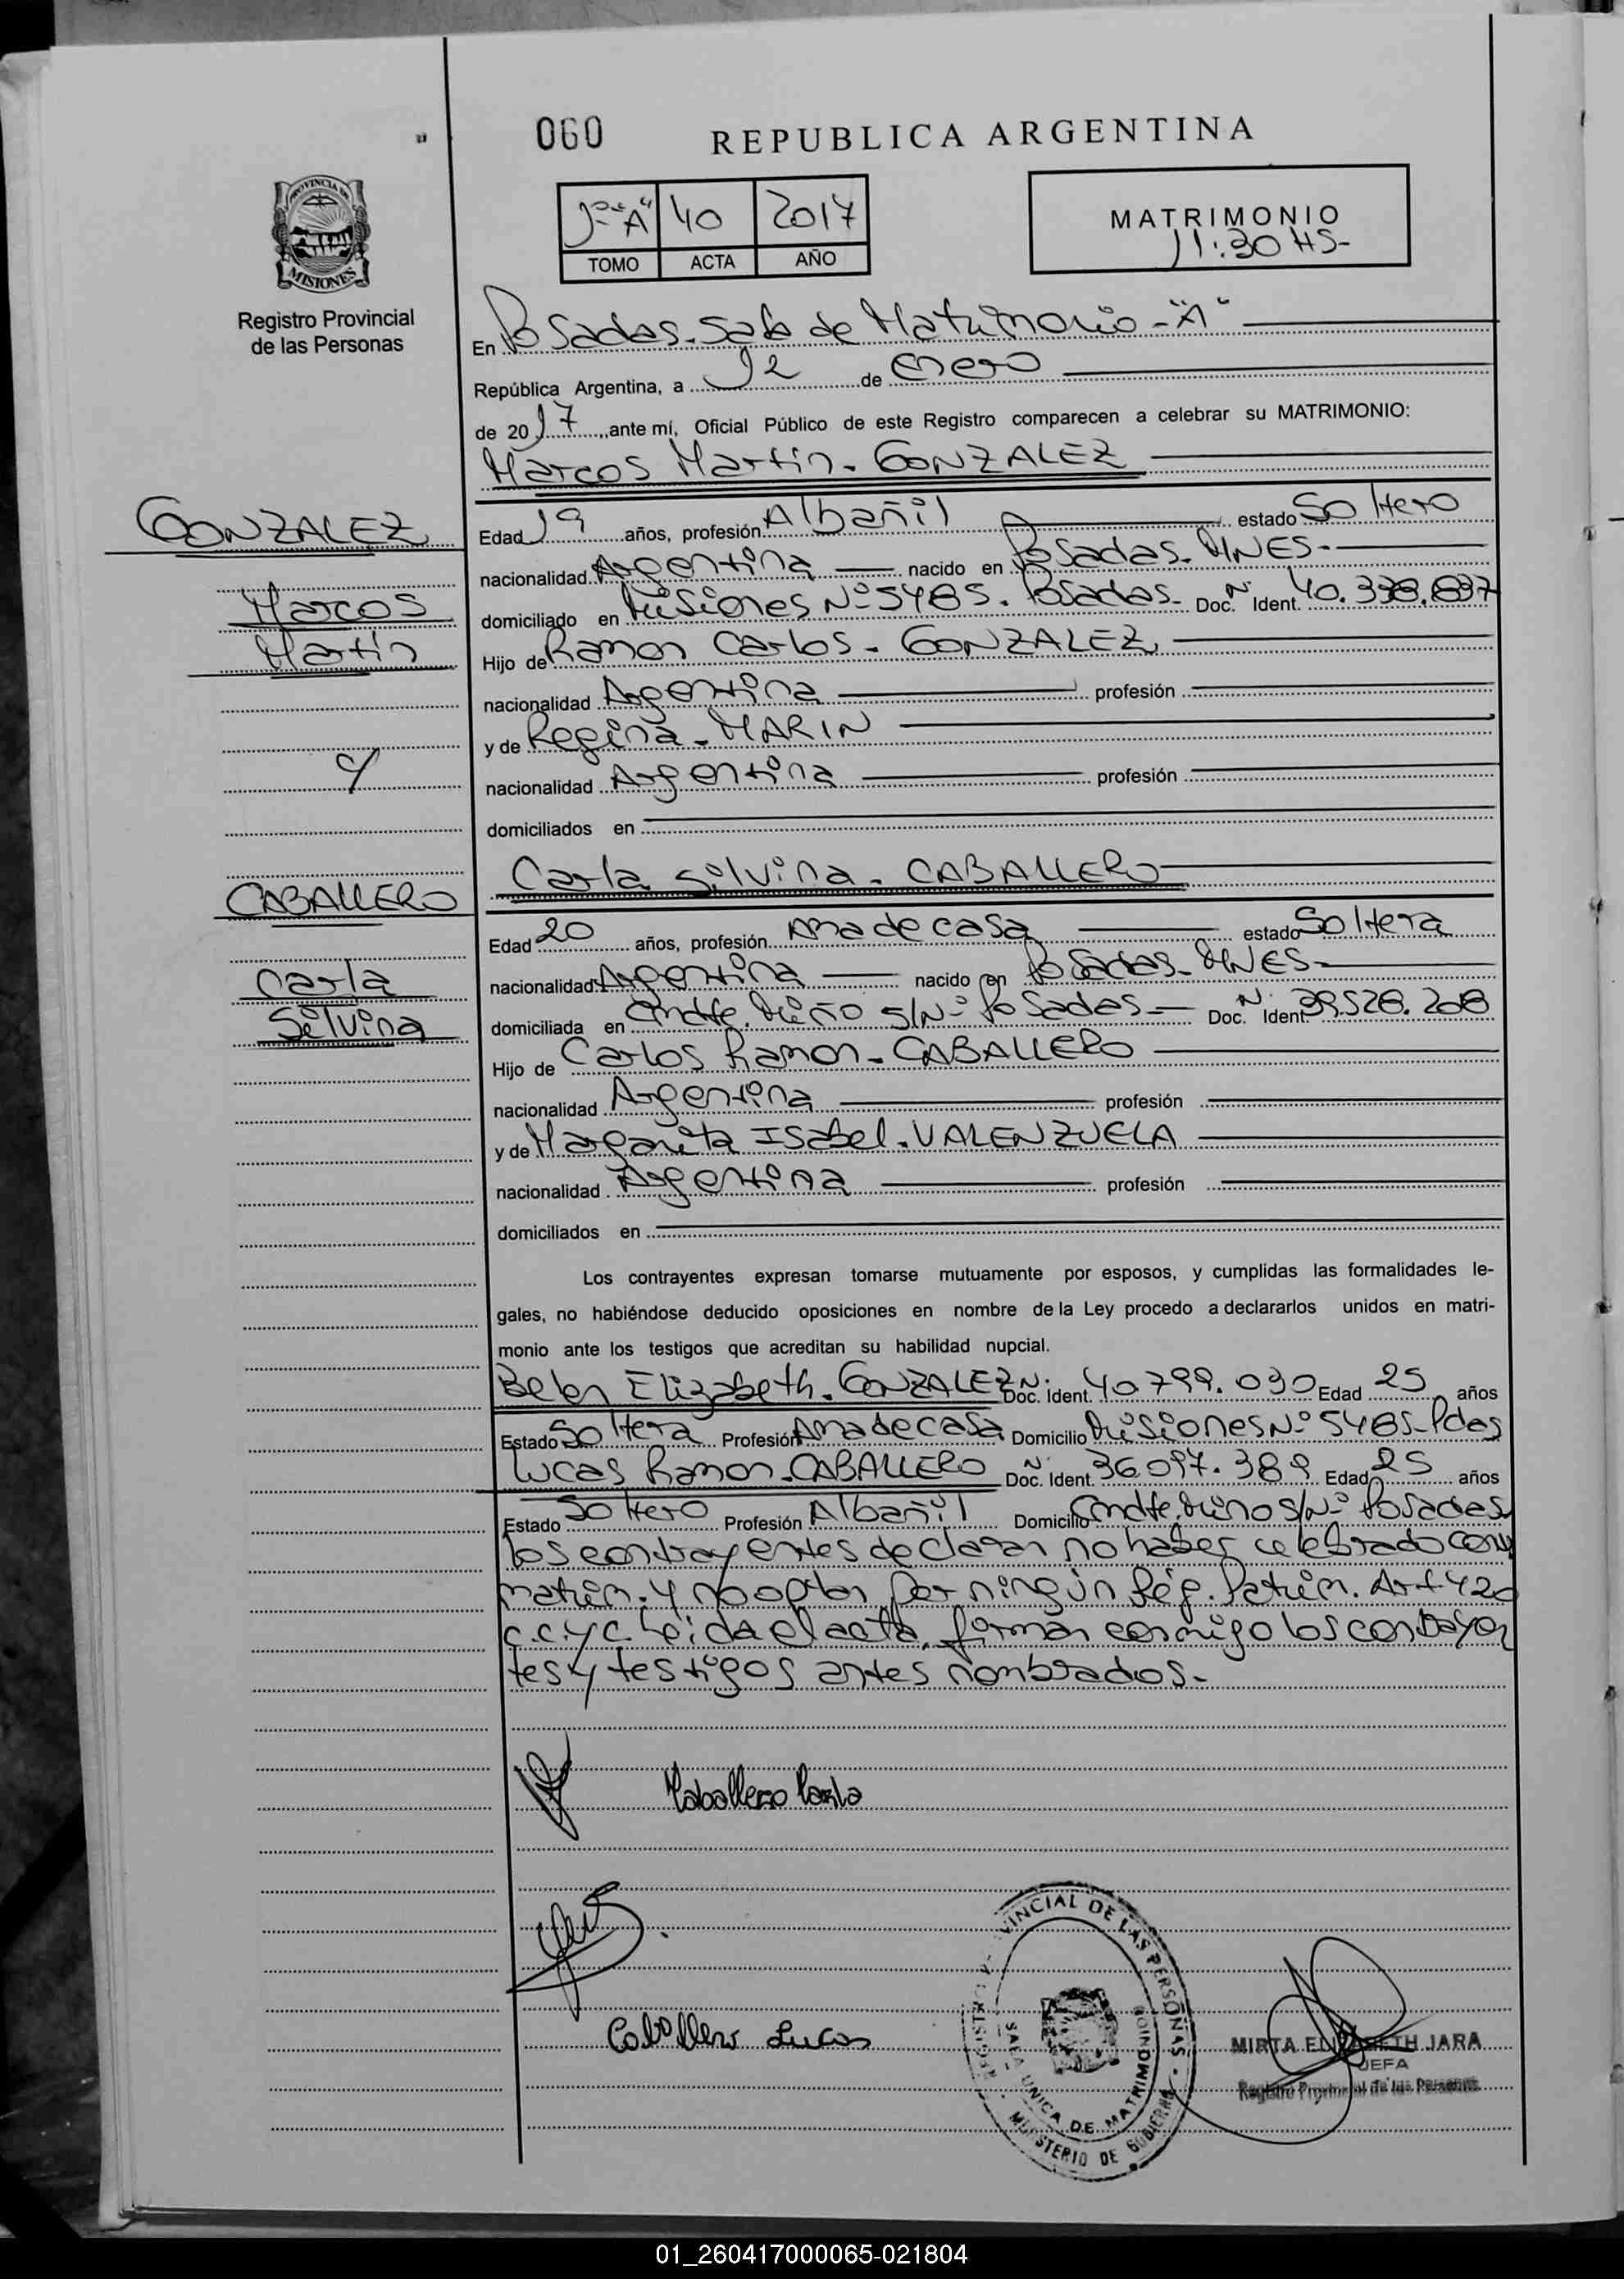 060 REPUBLICA ARGENTINA
1º "A" 40 2017
TOMO ACTA AÑO
MATRIMONIO
11:30 HS-
PROVINCIA DE
MISIONES
Registro Provincial
de las Personas
En Posadas - Sala de Matrimonio - "A"
República Argentina, a 12 de Enero
de 20 17 ,,ante mí, Oficial Público de este Registro comparecen a celebrar su MATRIMONIO:
Marcos Martin - GONZALEZ
GONZALEZ
Marcos
Martin
y
CABALLERO
Carla
Silvina
Edad 19 años, profesión Albañil estado Soltero
nacionalidad Argentina nacido en Posadas - MNES -
domiciliado en Misiones Nº 5485. Posadas - Doc. Ident. Nº 40.338.837
Hijo de Ramon Carlos - GONZALEZ
nacionalidad Argentina profesión
y de Regina - MARIN
nacionalidad Argentina profesión
domiciliados en
Carla Silvina - CABALLERO
Edad 20 años, profesión Ama de casa estado Soltera
nacionalidad Argentina nacido en Posadas - MNES -
domiciliada en Cmdte. Miño S/Nº Posadas - Doc. Ident. Nº 39.528.208
Hijo de Carlos Ramon - CABALLERO
nacionalidad Argentina profesión
y de Margarita Isabel - VALENZUELA
nacionalidad Argentina profesión
domiciliados en
Los contrayentes expresan tomarse mutuamente por esposos, y cumplidas las formalidades le-
gales, no habiéndose deducido oposiciones en nombre de la Ley procedo a declararlos unidos en matri-
monio ante los testigos que acreditan su habilidad nupcial.
Belen Elizabeth - GONZALEZ Doc. Ident. Nº 40.799.030 Edad 25 años
Estado Soltera Profesión Ama de casa Domicilio Misiones Nº 5485 - Pdas
Lucas Ramon - CABALLERO Doc. Ident. Nº 36.097.389 Edad 25 años
Estado Soltero Profesión Albañil Domicilio Cmdte. Miño S/Nº Posadas
los contrayentes declaran no haber celebrado conv
matrim. y no optan por ningún Rég. Patrim. Art. 420
C.C.y C. Leida el acta, firman conmigo los contrayen
tes y testigos antes nombrados.-
Caballero Carla
Caballero Lucas
REGISTRO PROVINCIAL DE LAS PERSONAS -
SALA UNICA DE MATRIMONIO
MINISTERIO DE GOBIERNO
MIRTA ELIZABETH JARA
JEFA
Registro Provincial de las Personas
01_260417000065-021804